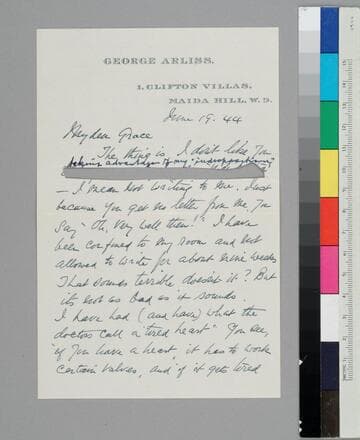 GEORGE ARLISS.
1, CLIFTON VILLAS,
MAIDA HILL, W. 9.
June 19. 44
My dear Grace
The thing is, I don't like you
taking advantage of my
– I mean not writing to me. Just
because you get no letter from me, you
say "Oh, very well then!" I have
been confined to my room and not
allowed to write for about nine weeks
That sounds terrible, doesn't it? But
it's not as bad as it sounds.
I have had (and have) what the
doctors call a "tired heart" You see,
if you have a heart, it has to work
certain valves, and if it gets tired